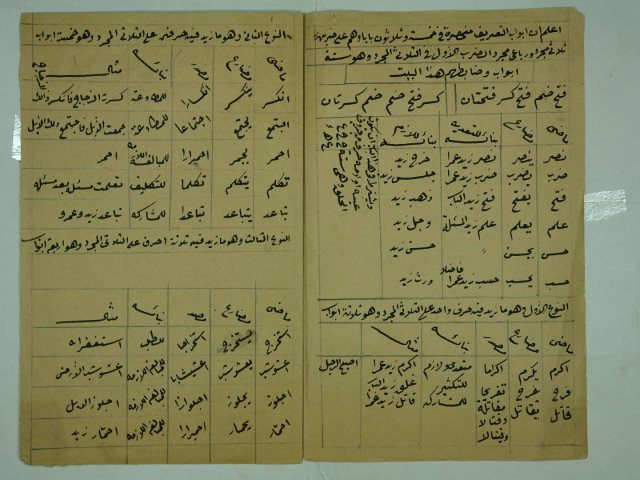 اعلم ان ابواب التصريف منحصرة في خمسة وثلاثون بابا وهم على ضربين
ثلاثي مجرد ورباعي مجرد الضرب الاول في الثلاثي المجرد وهو ستة
ابواب وضابطهم هذا البيت
فتح ضم فتح كسر فتحتان كسر فتح ضم ضم كسرتان
ماضى مضارع بنائه للتعدية بنائه للازم
نصر ينصر نصر زيد عمرا خرج زيد
ضرب يضرب ضرب زيد عمرا جلس زيد
فتح يفتح فتح زيد الباب ذهب زيد
علم يعلم علم زيد المسئلة وجل زيد
حسن يحسن حسن زيد
حسب يحسب حسب زيد عمرا فاضلا ورث زيد
النوع الاول وهو ما زيد فيه حرف واحد على الثلاثي المجرد وهو ثلاثة ابواب
ماضى مضارع مصدر بنائه مثال
اكرم يكرم اكراما متعدي ولازم اكرم زيد عمرا اصبح الرجل
فرح يفرح تفريحا للتكثير غلق زيد الباب
قاتل يقاتل مقاتلة وقتالا وقيتالا للمشاركة قاتل زيد عمرا
النوع الثاني وهو ما زيد فيه حرفين على الثلاثي المجرد وهو خمسة ابواب
ماضى مضارع مصدر بنائه مثال
انكسر ينكسر انكسارا للمطاوعة كسرت الزجاج فانكسر ذلك الزجاج
اجتمع يجتمع اجتماعا للمطاوعة جمعت الابل فاجتمع ذلك الابل
احمر يحمر احمرارا للمبالغة احمر
تكلم يتكلم تكلما للتكليف تعلمت مسئلة بعد مسئلة
تباعد يتباعد تباعدا للمشاركة تباعد زيد وعمرو
النوع الثالث وهو ما زيد فيه ثلاثة احرف على الثلاثي المجرد وهو اربعة ابواب
ماضى مضارع مصدر بنائه مثال
استخرج يستخرج استخراجا للطلب استغفر الله
اعشوشب يعشوشب اعشيشابا اعشوشب الارض
اجلوز يجلوز اجلوازا اجلوز الابل
احمار يحمار احميرارا احمار زيد